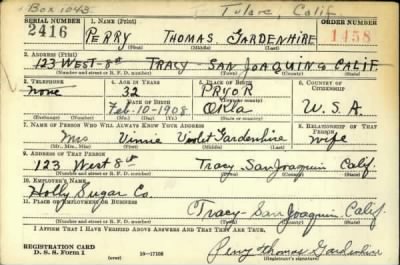 Box 1043 Tulare, Calif.
SERIAL NUMBER 1. NAME (Print) ORDER NUMBER
2416 PERRY THOMAS GARDENHIRE 1458
(First) (Middle) (Last)
2. ADDRESS (Print)
123 WEST-8th TRACY - SAN JOAQUIN CALIF.
(Number and street or R. F. D. number) (Town) (County) (State)
3. TELEPHONE 4. AGE IN YEARS 5. PLACE OF BIRTH 6. COUNTRY OF CITIZENSHIP
none 32 PRYOR
DATE OF BIRTH (Town or county)
Feb-10-1908 Okla U.S.A.
(Exchange) (Number) (Mo.) (Day) (Yr.) (State or country)
7. NAME OF PERSON WHO WILL ALWAYS KNOW YOUR ADDRESS 8. RELATIONSHIP OF THAT PERSON
Mrs Vinnie Violet Gardenhire wife
(Mr., Mrs., Miss) (First) (Middle) (Last)
9. ADDRESS OF THAT PERSON
123 West 8th Tracy, San Joaquin Calif.
(Number and street or R. F. D. number) (Town) (County) (State)
10. EMPLOYER'S NAME
Holly Sugar Co.
11. PLACE OF EMPLOYMENT OR BUSINESS
Tracy - San Joaquin Calif.
(Number and street or R. F. D. number) (Town) (County) (State)
I AFFIRM THAT I HAVE VERIFIED ABOVE ANSWERS AND THAT THEY ARE TRUE.
REGISTRATION CARD
D. S. S. Form 1 16-17105 Perry Thomas Gardenhire
(Registrant's signature)